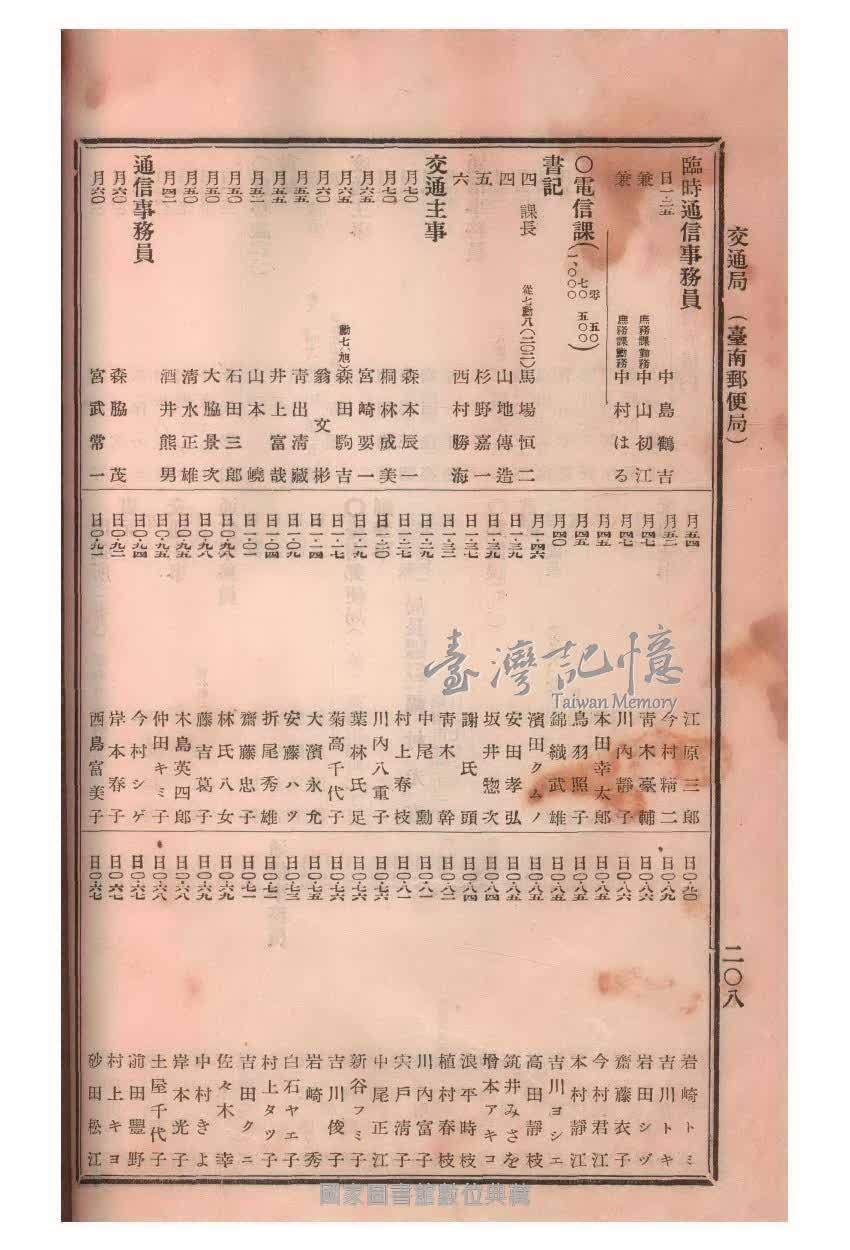 交通局（臺南郵便局）
二〇八
臨時通信事務員
日一・二五 中島鶴吉
兼 庶務課勤務 中山初江
兼 庶務課勤務 中村はる
〇電信課
書記
四 課長 從七勳八(二〇三) 馬場恒二
四 山地傳造
五 杉野嘉一
六 西村勝海
交通主事
月七〇 森本辰一
月七〇 桐林成美
月六五 宮崎要一
月六五 勳七、旭 森田駒吉
月六〇 翁文彬
月五五 靑出淸藏
月五五 井上富哉
月五二 山本嶢
月五〇 石田三郎
月五〇 大脇景次
月五〇 淸水正雄
月四二 酒井熊男
通信事務員
月六〇 森脇茂
月六〇 宮武常一
月五四 江原三郎
月五二 今村精二
月四七 靑木豪輔
月四七 川內靜子
月四五 本田幸太郎
月四五 鳥羽照子
月四〇 錦織武雄
月一・四六 濱田クムノ
日一・三九 安田孝弘
日一・三九 坂井惣次
日一・三七 謝氏頭
日一・三二 靑木幹
日一・二九 中尾勳
日一・二七 村上春枝
日一・二〇 川內八重子
日一・一九 葉林氏足
日一・一七 菊高千代子
日一・一四 大濱永允
日一・〇九 安藤ハツ
日一・〇四 折尾秀雄
日一・〇一 齋藤忠子
日〇・九八 林氏八女
日〇・九八 藤吉葛子
日〇・九五 木島英四郎
日〇・九五 仲田キミ子
日〇・九四 今村シゲ
日〇・九二 岸本春子
日〇・九一 西島富美子
日〇・九〇 岩崎トミ
日〇・八九 吉川トキ
日〇・八六 岩田シヅ
日〇・八六 齋藤衣子
日〇・八五 今村君江
日〇・八五 本村靜江
日〇・八五 吉川ヨシエ
日〇・八五 高田靜枝
日〇・八五 筑井みさを
日〇・八四 增本アキコ
日〇・八四 浪平時枝
日〇・八二 植村春枝
日〇・八一 川內富子
日〇・八一 宍戶淸子
日〇・七六 中尾正江
日〇・七六 新谷フミ子
日〇・七六 吉川俊子
日〇・七五 岩崎秀
日〇・七三 白石ヤエ子
日〇・七二 村上タツ子
日〇・七一 吉田クニ
日〇・六九 佐々木幸
日〇・六九 中村きよ
日〇・六八 岸本光子
日〇・六八 土屋千代子
日〇・六七 前田豐野
日〇・六七 村上キヨ
日〇・六七 砂田松江
臺灣記憶
Taiwan Memory
國家圖書館數位典藏